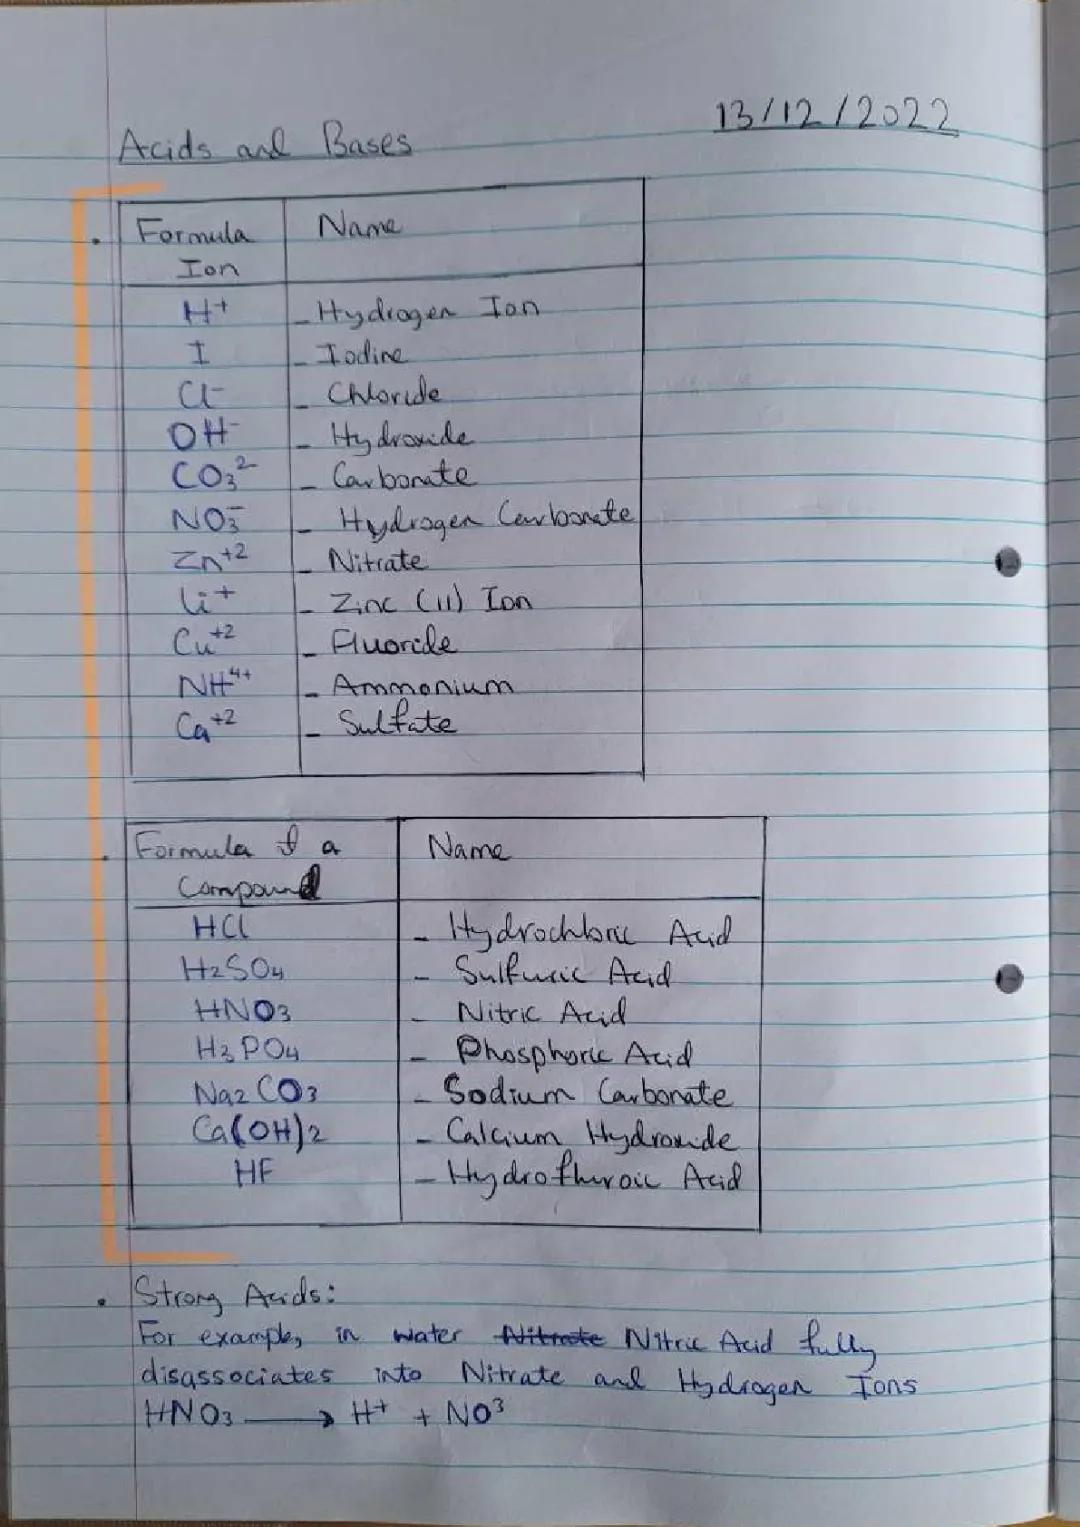 13/12/2022
Acids and Bases
Formula Name
Ion
H+ - Hydrogen Ion
I - Iodine
Cl- - Chloride
OH- - Hydroxide
CO3^2- - Carbonate
NO3^- - Hydrogen Carbonate
Zn+2 - Nitrate
Li+ - Zinc (II) Ion
Cu+2 - Fluoride
NH4+ - Ammonium
Ca+2 - Sulfate
Formula of a Name
Compound
HCl - Hydrochloric Acid
H2SO4 - Sulfuric Acid
HNO3 - Nitric Acid
H3PO4 - Phosphoric Acid
Na2CO3 - Sodium Carbonate
Ca(OH)2 - Calcium Hydroxide
HF - Hydrofluroic Acid
• Strong Acids:
For example, in water Nitrate Nitric Acid fully
disassociates into Nitrate and Hydrogen Ions
HNO3 → H+ + NO^3